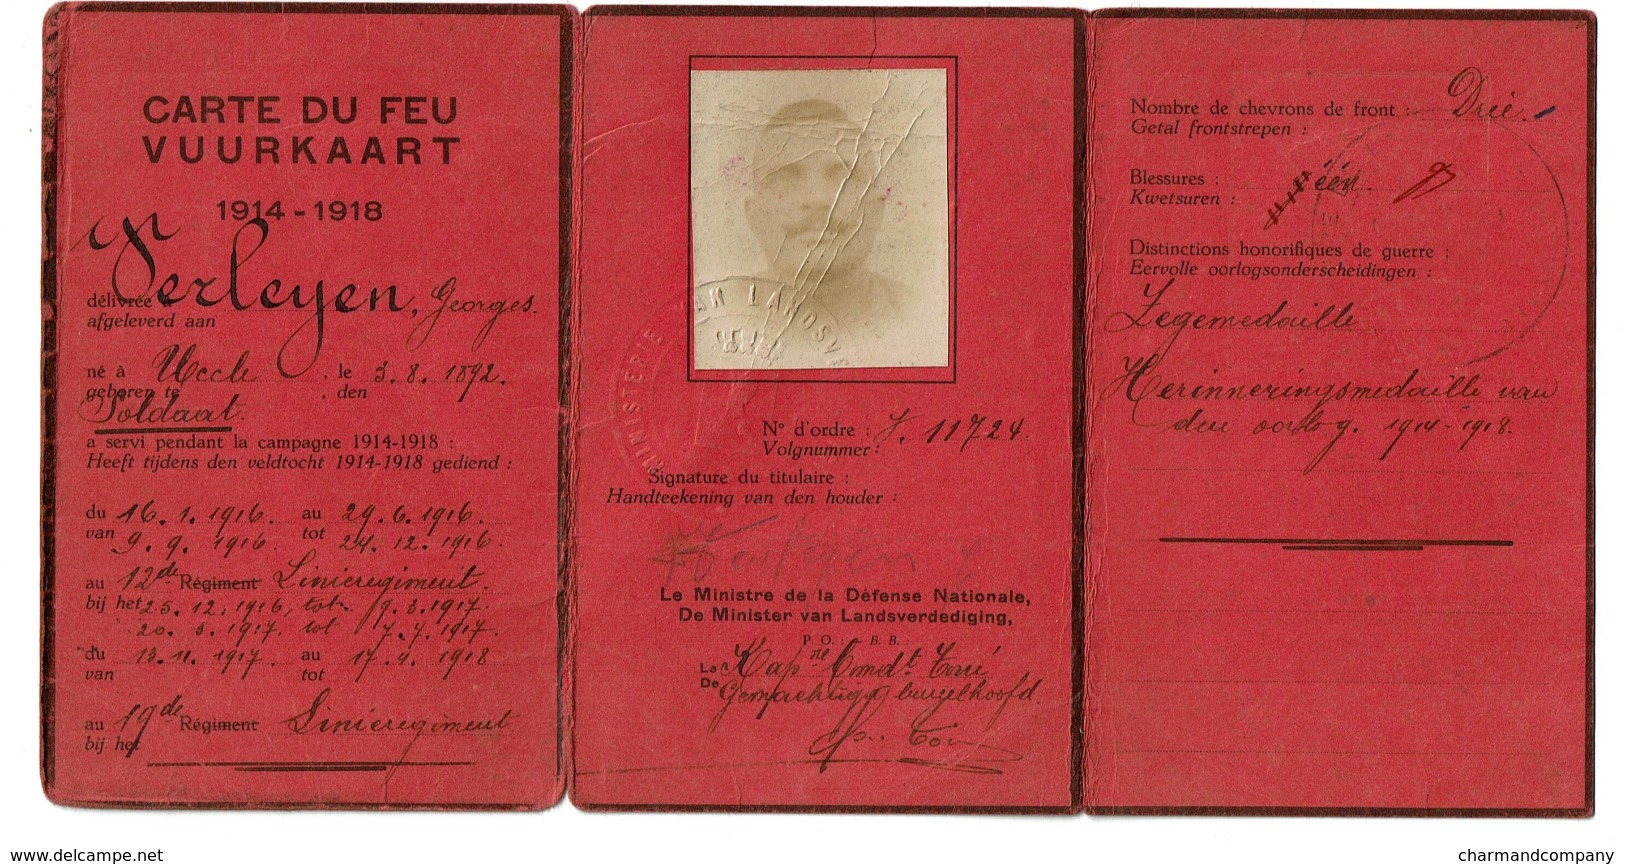 CARTE DU FEU
VUURKAART
1914 - 1918
délivrée à Verleyen, Georges.
afgeleverd aan
né à Uccle , le 3. 8. 1892.
geboren te , den
Soldaat.
a servi pendant la campagne 1914-1918 :
Heeft tijdens den veldtocht 1914-1918 gediend :
du 16. 1. 1916. au 29. 6. 1916.
van 9. 9. 1916. tot 24. 12. 1916.
au 12de Régiment Linieregiment.
bij het 25. 12. 1916, tot 9. 3. 1917.
20. 3. 1917. tot 7. 7. 1917.
du 13. 11. 1917. au 17. 4. 1918
van tot
au 19de Régiment Linieregiment
bij het
MINISTERIE VAN LANDSVE
N° d'ordre : 11724
Volgnummer :
Signature du titulaire :
Handteekening van den houder :
Verleyen
Le Ministre de la Défense Nationale,
De Minister van Landsverdediging,
P. O. : B. B. :
Le Kapne Comdt
De Gemachtigd beugelhoofd.
Nombre de chevrons de front : Drie.
Getal frontstrepen :
Blessures : één.
Kwetsuren :
Distinctions honorifiques de guerre :
Eervolle oorlogsonderscheidingen :
Zegemedaille
Herinneringsmedaille van
den oorlog. 1914-1918.
www.delcampe.net
charmandcompany